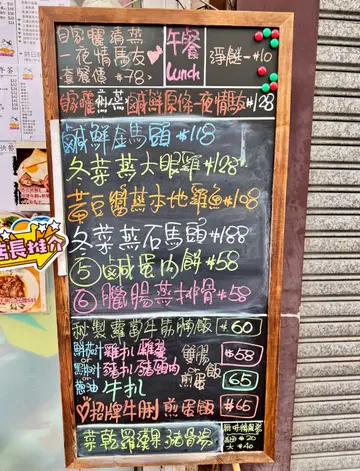 自家曬清蒸
一夜情馬友
套餐價 $78
午餐
Lunch
淨餸-$10
鹹鮮
一夜情馬友 $128
鹹鮮金馬頭 $118
冬菜蒸大眼雞 $128
黃豆醬蒸本地雞魚 $108
冬菜蒸石馬頭 $188
⑤ 鹹蛋肉餅 $58
⑥ 臘腸蒸排骨 $58
秘製蘿蔔牛筋腩飯 $60
鮮茄汁 雞扒 雞翼
or
黑椒汁 豬扒 豬頸肉
雙腸
煎蛋飯
$58
蔥油 牛扒
65
招牌牛脷 煎蛋飯 $65
菜乾羅漢果豬骨湯
細 $20
大 $40
店長推介